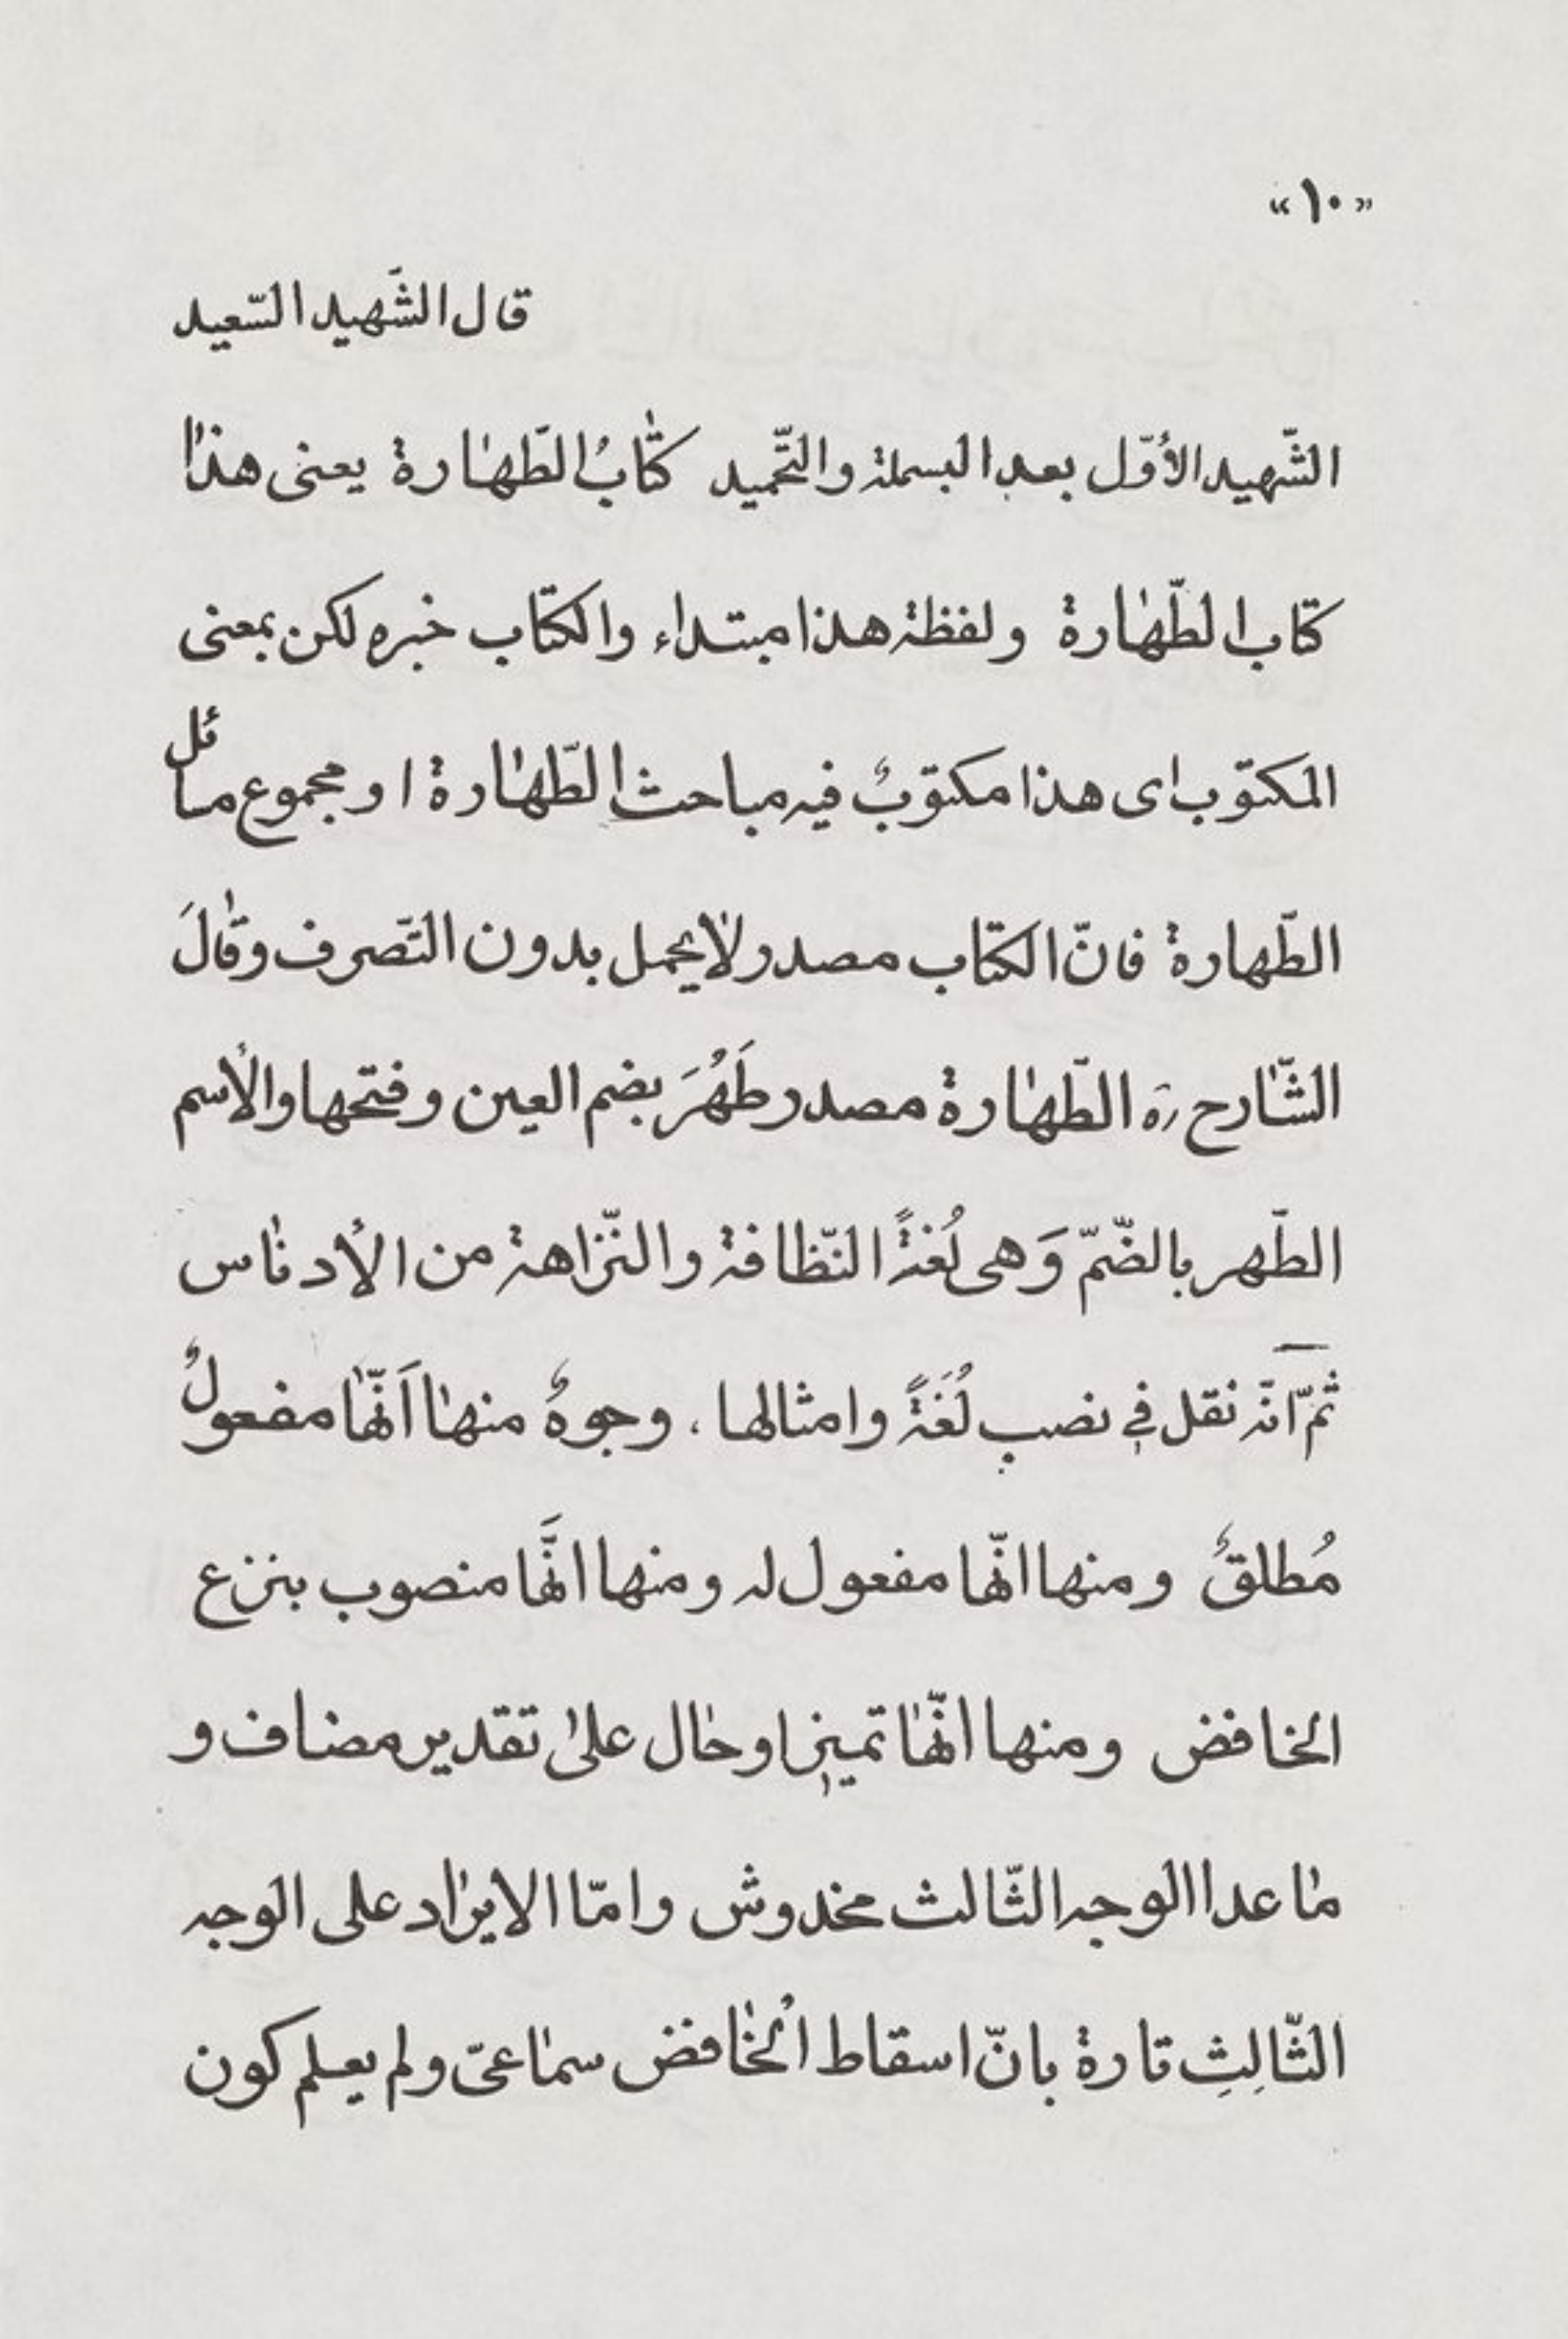 «١٠»
قال الشّهيد السّعيد
الشّهيد الأوّل بعد البسملة والتّحميد كتابُ الطّهارة يعنى هذا
كتاب الطّهارة ولفظة هذا مبتداء والكتاب خبره لكن بمعنى
المكتوب اى هذا مكتوبٌ فيه مباحث الطّهارة او مجموع مسائل
الطّهارة فانّ الكتاب مصدر ولا يحمل بدون التّصرف وقالَ
الشّارح ره الطّهارة مصدر طَهُرَ بضم العين وفتحها والأسم
الطّهر بالضّمّ وَهى لُغةً النّظافة والنّزاهة من الأدناس
ثمّ انّه نقل في نصب لُغَةً وامثالها، وجوهٌ منها اَنّها مفعولٌ
مُطلقٌ ومنها انّها مفعول له ومنها انَّها منصوب بنزع
الخافض ومنها انّها تميزٖ او حال على تقدير مضاف و
ما عدا الوجه الثّالث مخدوش وامّا الايراد على الوجه
الثّالِثِ تارة بانّ اسقاط الخافض سماعىّ ولم يعلم كون